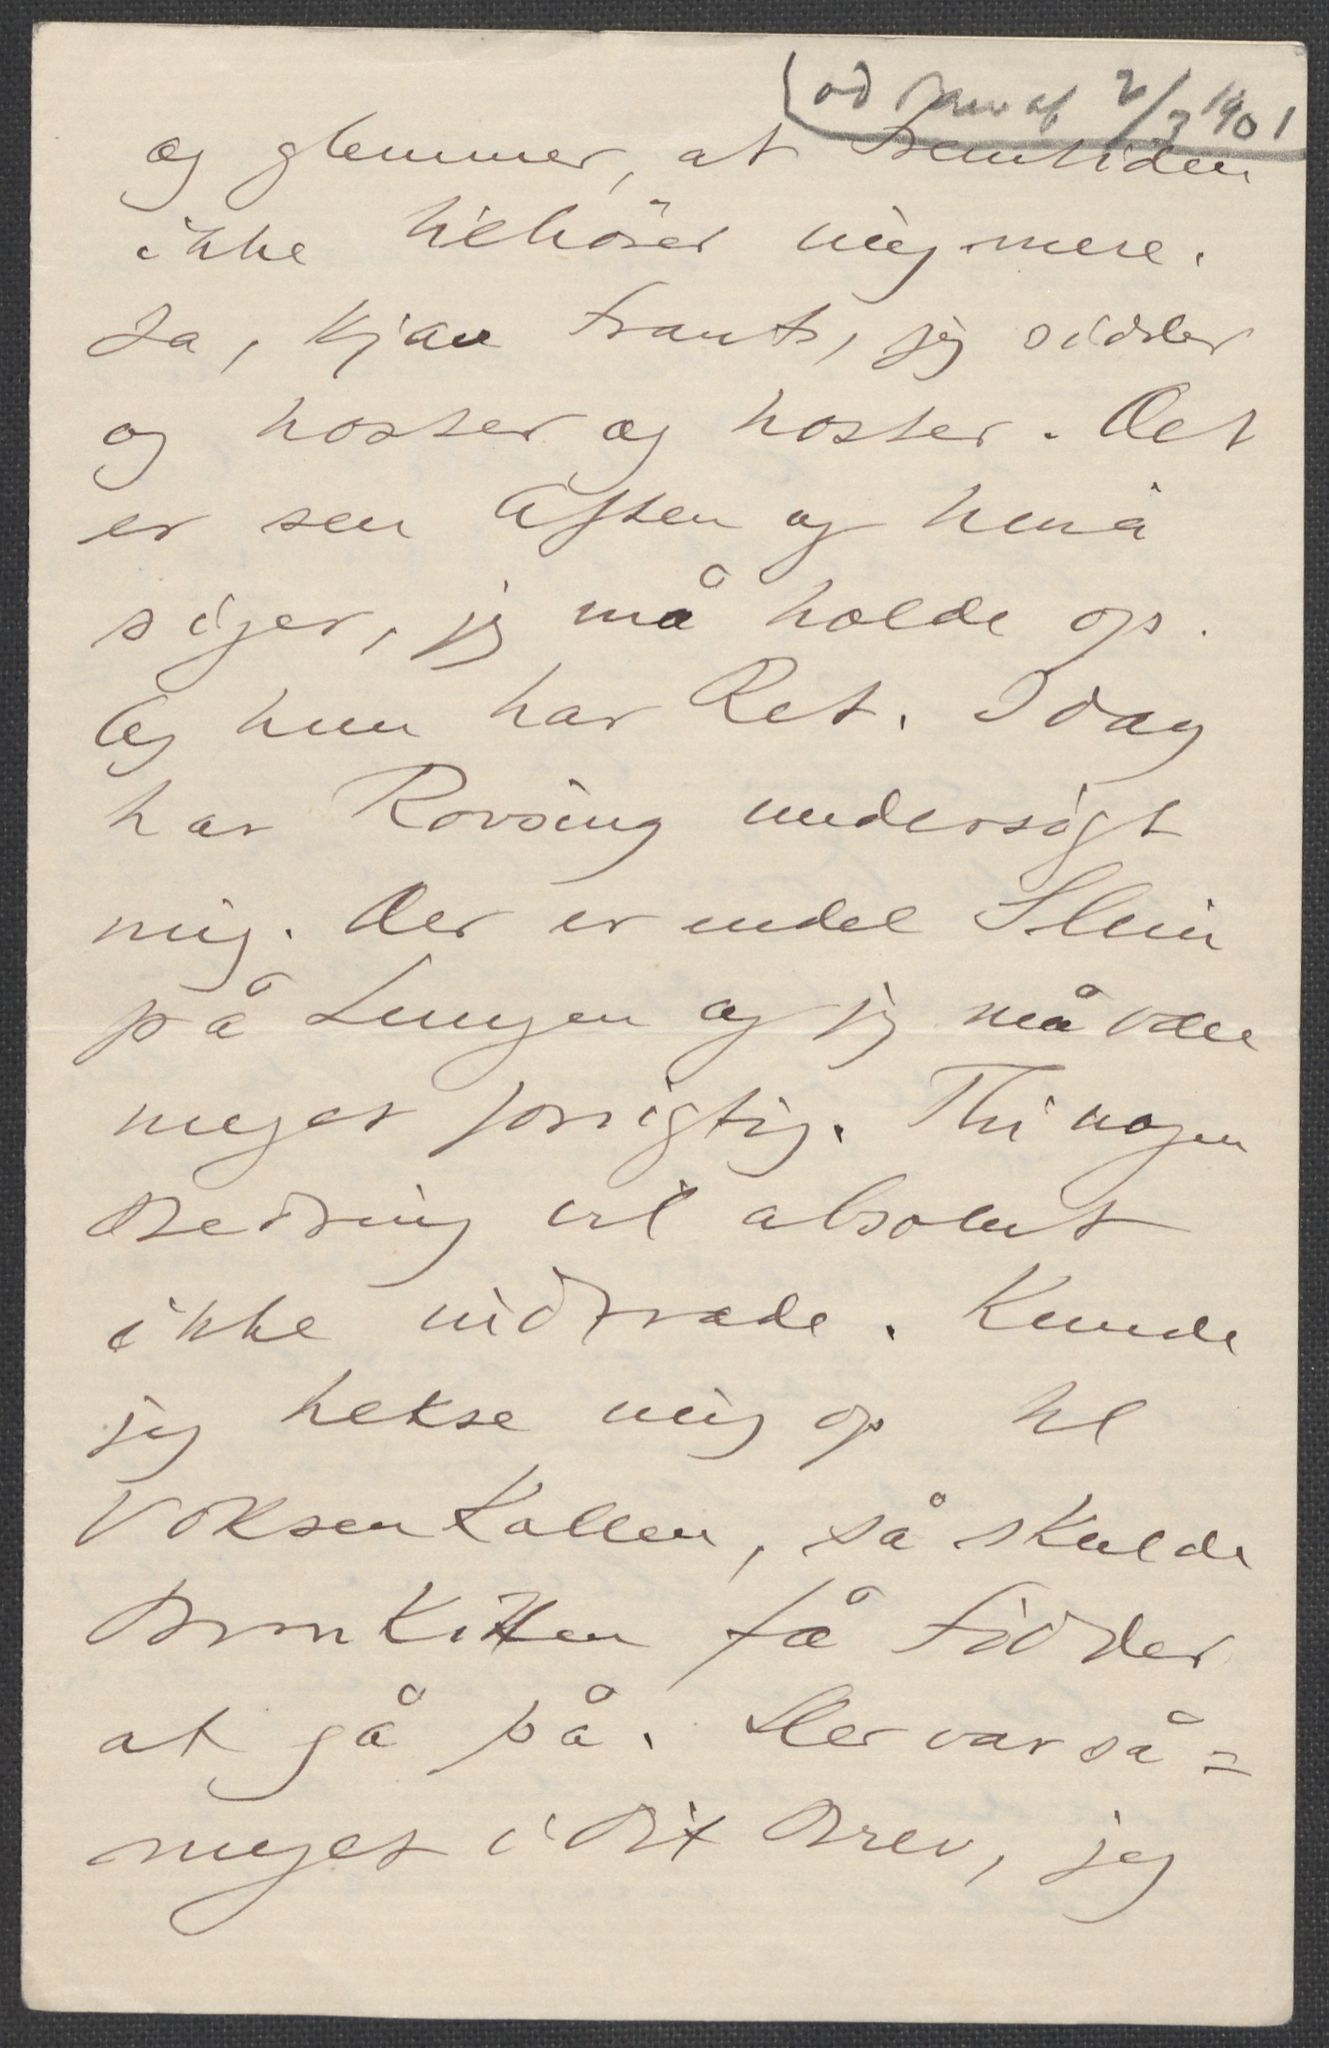 af 2/3 1901
og glemmer, at Fremtiden
ikke tilhører mig mere.
Ja, kjære Frants, jeg sidder
og hoster og hoster. Det
er sen Aften og Nina
siger, jeg må holde op.
Og hun har Ret. Idag
har Rovsing undersøgt
mig. Der er endel Slim
på Lungen og jeg må være
meget forsigtig. Thi nogen
Bedring vil absolut
ikke indtræde. Kunde
jeg hekse mig op til
Voksenkollen, så skulde
Bronkitten få Fødder
at gå på. Der var så=
meget i Dit Brev, jeg